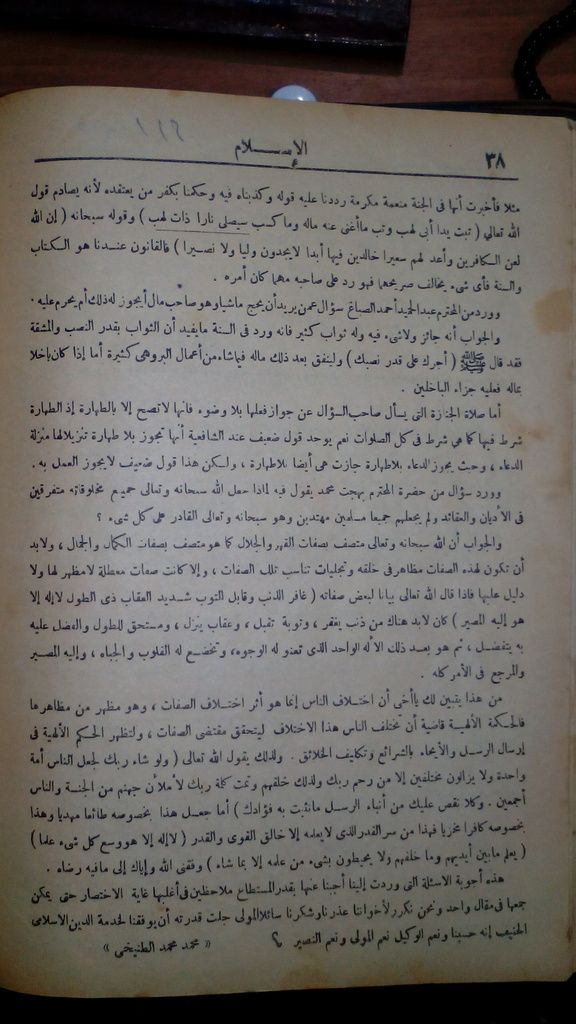 ٣٨
الإسلام
مثلا فأخبرت أنها فى الجنة منعمة مكرمة رددنا عليه قوله وكذبناه فيه وحكمنا بكفر من يعتقده لأنه يصادم قول
الله تعالى ( تبت يدا أبى لهب وتب ما أغنى عنه ماله وما كسب سيصلى نارا ذات لهب ) وقوله سبحانه ( إن الله
لعن الكافرين وأعد لهم سعيرا خالدين فيها أبدا لا يجدون وليا ولا نصيرا ) فالقانون عندنا هو الكتاب
والسنة فأى شىء يخالف صريحهما فهو رد على صاحبه مهما كان أمره .
وورد من المحترم عبد الحميد أحمد الصباغ سؤال عمن يريد أن يحج ماشيا وهو صاحب مال أيجوز له ذلك أم يحرم عليه .
والجواب أنه جائز ولا شىء فيه وله ثواب كثير فانه ورد فى السنة ما يفيد أن الثواب بقدر النصب والمشقة
فقد قال ﷺ ( أجرك على قدر نصبك ) ولينفق بعد ذلك ماله فيما شاء من أعمال البر وهى كثيرة أما إذا كان باخلا
بماله فعليه جزاء الباخلين .
أما صلاة الجنازة التى يسأل صاحب السؤال عن جواز فعلها بلا وضوء فانها لا تصح إلا بالطهارة إذ الطهارة
شرط فيها كما هى شرط فى كل الصلوات نعم يوجد قول ضعيف عند الشافعية أنها تجوز بلا طهارة تنزيلا لها منزلة
الدعاء ، وحيث يجوز الدعاء بلا طهارة جازت هى أيضا بلا طهارة ، ولكن هذا قول ضعيف لا يجوز العمل به .
وورد سؤال من حضرة المحترم بهجت محمد يقول فيه لماذا جعل الله سبحانه وتعالى جميع مخلوقاته متفرقين
فى الأديان والعقائد ولم يجعلهم جميعا مسلمين مهتدين وهو سبحانه وتعالى القادر على كل شىء ؟
والجواب أن الله سبحانه وتعالى متصف بصفات القهر والجلال كما هو متصف بصفات الكمال والجمال ، ولابد
أن تكون لهذه الصفات مظاهر فى خلقه وتجليات تناسب تلك الصفات ، وإلا كانت صفات معطلة لا مظهر لها ولا
دليل عليها فاذا قال الله تعالى بيانا لبعض صفاته ( غافر الذنب وقابل التوب شديد العقاب ذى الطول لا إله إلا
هو إليه المصير ) كان لابد هناك من ذنب يغفر ، وتوبة تقبل ، وعقاب ينزل ، ومستحق للطول والفضل عليه
به يتفضل ، ثم هو بعد ذلك الاله الواحد الذى تعنو له الوجوه ، وتخضع له القلوب والجباه ، وإليه المصير
والمرجع فى الأمر كله .
من هذا يتبين لك يا أخى أن اختلاف الناس إنما هو أثر اختلاف الصفات ، وهو مظهر من مظاهرها
فالحكمة الالهية قاضية أن تختلف الناس هذا الاختلاف ليتحقق مقتضى الصفات ، ولتظهر الحكم الالهية فى
إرسال الرسل والايحاء بالشرائع وتكاليف الخلائق . ولذلك يقول الله تعالى ( ولو شاء ربك لجعل الناس أمة
واحدة ولا يزالون مختلفين إلا من رحم ربك ولذلك خلقهم وتمت كلمة ربك لأملأن جهنم من الجنة والناس
أجمعين . وكلا نقص عليك من أنباء الرسل ما نثبت به فؤادك ) أما جعل هذا بخصوصه طائعا مهديا وهذا
بخصوصه كافرا مخزيا فهذا من سر القدر الذى لا يعلمه إلا خالق القوى والقدر ( لا إله إلا هو وسع كل شىء علما )
( يعلم ما بين أيديهم وما خلفهم ولا يحيطون بشىء من علمه إلا بما شاء ) وفقنى الله وإياك إلى ما فيه رضاه .
هذه أجوبة الاسئلة التى وردت إلينا أجبنا عنها بقدر المستطاع ملاحظين فى أغلبها غاية الاختصار حتى يمكن
جمعها فى مقال واحد ونحن نكرر لأخواننا عذرنا وشكرنا سائلا المولى جلت قدرته أن يوفقنا لخدمة الدين الاسلامى
الحنيف إنه حسبنا ونعم الوكيل نعم المولى ونعم النصير
« محمد محمد الطنيخى »